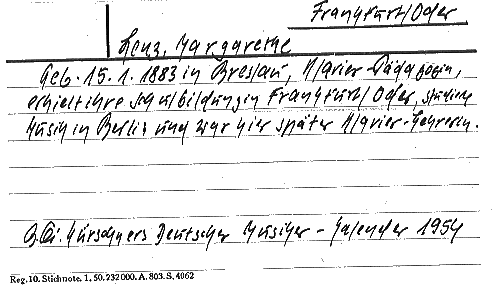 Frankfurt/Oder
Lenz, Margarethe
Geb. 15. 1. 1883 in Breslau, Klavier-Pädagogin,
erhielt ihre Ausbildung in Frankfurt/Oder, studierte
Musik in Berlin und war hier später Klavier-Lehrerin.
Kürschners Deutscher Musiker-Kalender 1954
Reg. 10. Stichnote. 1. 50. 232000. A. 803. S. 4062